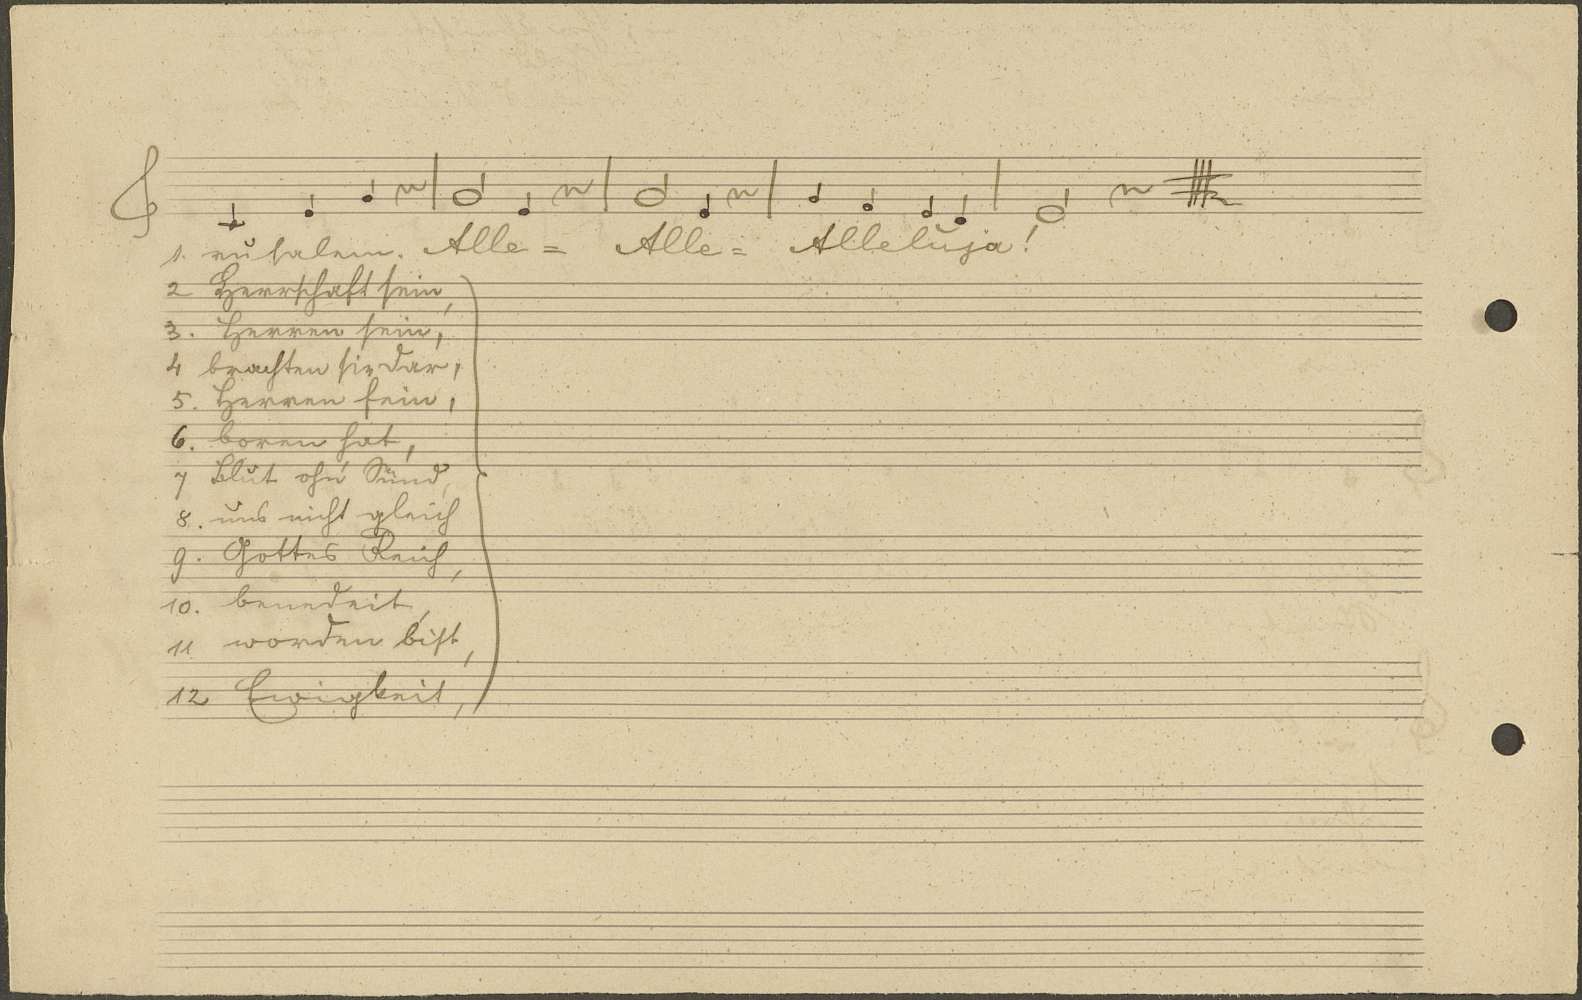 1. rusalem. Alle = Alle = Alleluja!
2 Herrschaft sein,
3. Herren sein,
4 brachten sie dar,
5. Herren sein,
6. boren hat,
7 Blut ohn' Sünd,
8. uns nicht gleich
9. Gottes Reich,
10. benedeit,
11 worden bist,
12 Ewigkeit,